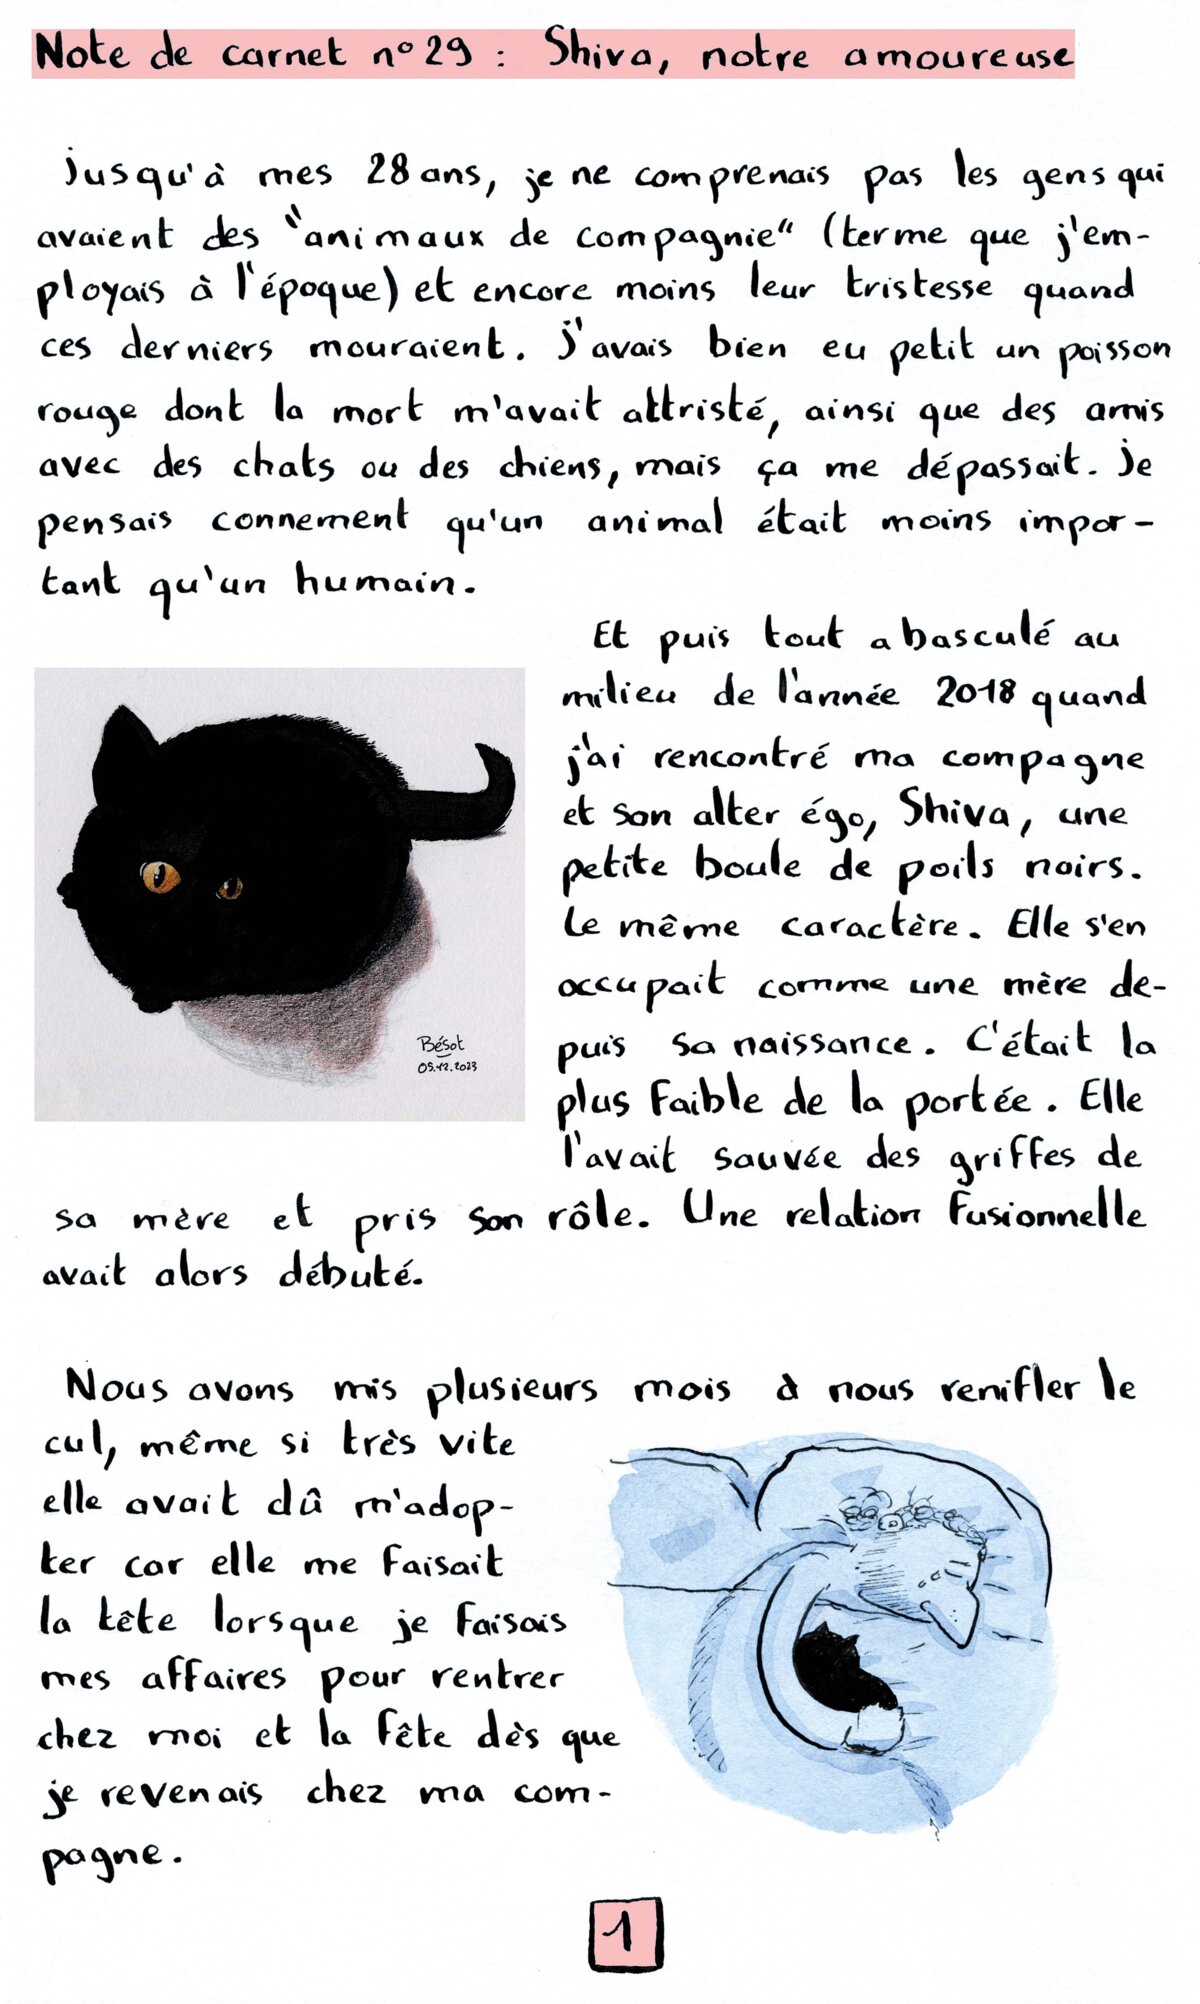 Note de carnet n°29 : Shiva, notre amoureuse
Jusqu'à mes 28 ans, je ne comprenais pas les gens qui
avaient des "animaux de compagnie" (terme que j'em-
ployais à l'époque) et encore moins leur tristesse quand
ces derniers mouraient. J'avais bien eu petit un poisson
rouge dont la mort m'avait attristé, ainsi que des amis
avec des chats ou des chiens, mais ça me dépassait. Je
pensais connement qu'un animal était moins impor-
tant qu'un humain.
Et puis tout a basculé au
milieu de l'année 2018 quand
j'ai rencontré ma compagne
et son alter égo, Shiva, une
petite boule de poils noirs.
Le même caractère. Elle s'en
occupait comme une mère de-
puis sa naissance. C'était la
plus faible de la portée. Elle
l'avait sauvée des griffes de
sa mère et pris son rôle. Une relation fusionnelle
avait alors débuté.
Bésot
05.12.2023
Nous avons mis plusieurs mois à nous renifler le
cul, même si très vite
elle avait dû m'adop-
ter car elle me faisait
la tête lorsque je faisais
mes affaires pour rentrer
chez moi et la fête dès que
je revenais chez ma com-
pagne.
1